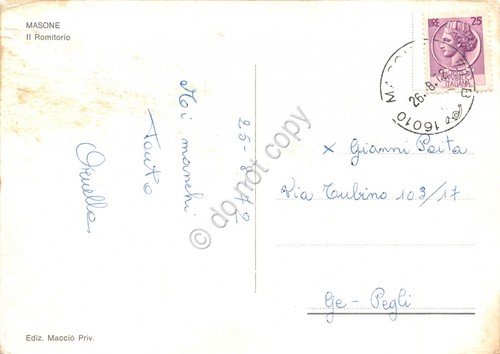 MASONE
Il Romitorio
LIRE 25
26-8
16010
25-8-72
Mi manchi
Tanto
Ornella
x Gianni Poita
Via Tubino 103/17
Ge-Pegli
Ediz. Macciò Priv.
do not copy